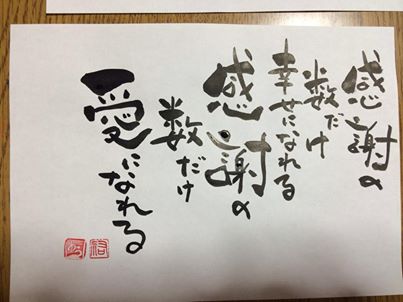 感謝の
数だけ
幸せになれる
感謝の
数だけ
愛になれる